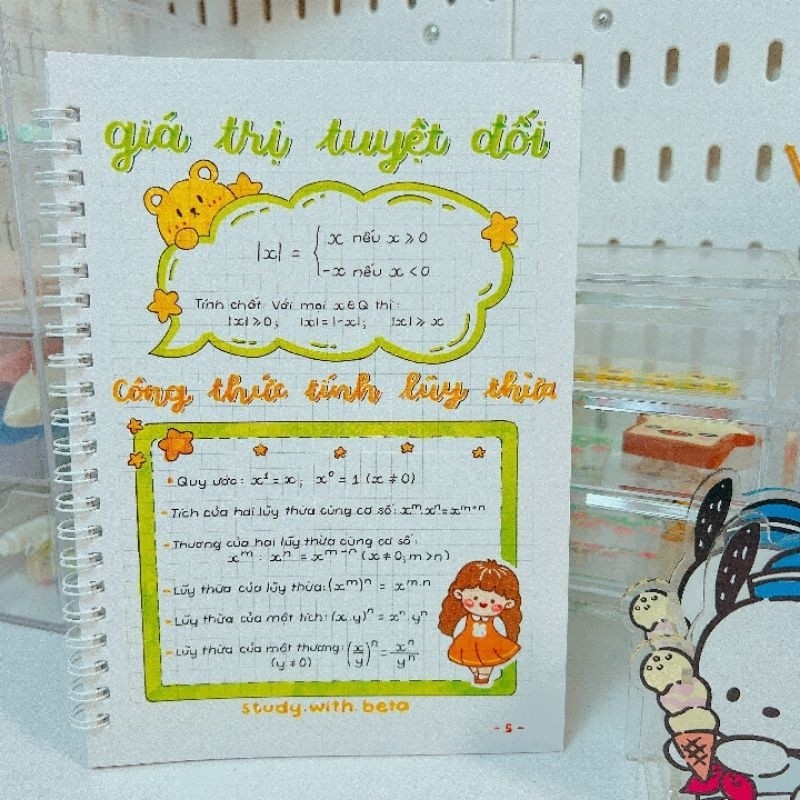 giá trị tuyệt đối
|x| = { x nếu x ≥ 0
-x nếu x < 0
Tính chất: Với mọi x ∈ Q thì:
|x| ≥ 0; |x| = |-x|; |x| ≥ x
Công thức tính lũy thừa
Quy ước: x¹ = x; x⁰ = 1 (x ≠ 0)
- Tích của hai lũy thừa cùng cơ số: xᵐ.xⁿ = xᵐ⁺ⁿ
- Thương của hai lũy thừa cùng cơ số:
xᵐ : xⁿ = xᵐ⁻ⁿ (x ≠ 0, m > n)
- Lũy thừa của lũy thừa: (xᵐ)ⁿ = xᵐ·ⁿ
- Lũy thừa của một tích: (x.y)ⁿ = xⁿ.yⁿ
- Lũy thừa của một thương: (x/y)ⁿ = xⁿ/yⁿ
(y ≠ 0)
study.with.beta
- 5 -